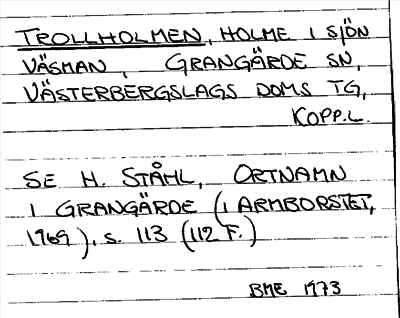 TROLLHOLMEN, HOLME I SJÖN
VÄSMAN, GRANGÄRDE SN,
VÄSTERBERGSLAGS DOMS TG,
KOPP.L.
SE H. STÅHL, ORTNAMN
I GRANGÄRDE (I ARMBORSTET,
1969), s. 113 (112 F.)
BME 1973